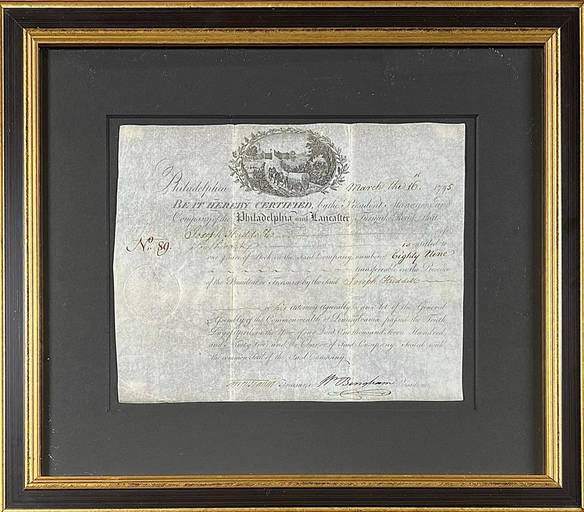 Philadelphia March the 16th 1795
BE IT HEREBY CERTIFIED, by the President Managers and
Company of the Philadelphia and Lancaster Turnpike Road, that
Joseph
No. 89. is entitled to
one share of Stock in the said Company, number Eighty Nine
transferable in the Presence
of the President or Treasurer by the said Joseph
or his Attorney Agreeably to an Act of the General
Assembly of the Commonwealth of Pennsylvania passed the
Day of April in the Year One thousand Seven Hundred
and Ninety Two and the Charter of said Company. Sealed with
the common Seal of the said Company.
Treasurer Wm Bingham President